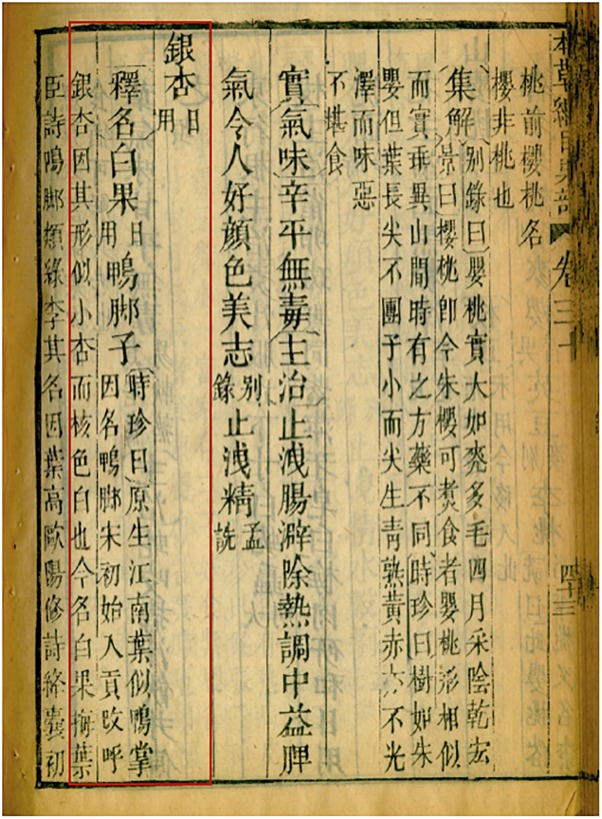 本草綱目果部 卷三十 四十三
桃前櫻桃名
櫻非桃也
集解 別錄曰嬰桃實大如麥多毛四月采陰乾宏
景曰櫻桃卽今朱櫻可煮食者嬰桃形相似
而實乖異山間時有之方藥不同時珍曰樹如朱
嬰但葉長尖不團子小而尖生青熟黃赤亦不光
澤而味惡
不堪食
實氣味辛平無毒主治止洩腸澼除熱調中益脾
氣令人好顏色美志別錄止洩精孟詵
銀杏日用
釋名白果日用鴨脚子時珍曰原生江南葉似鴨掌
因名鴨脚宋初始入貢改呼
銀杏因其形似小杏而核色白也今名白果梅葉
臣詩鴨脚類綠李其名因葉高歐陽修詩絳囊初